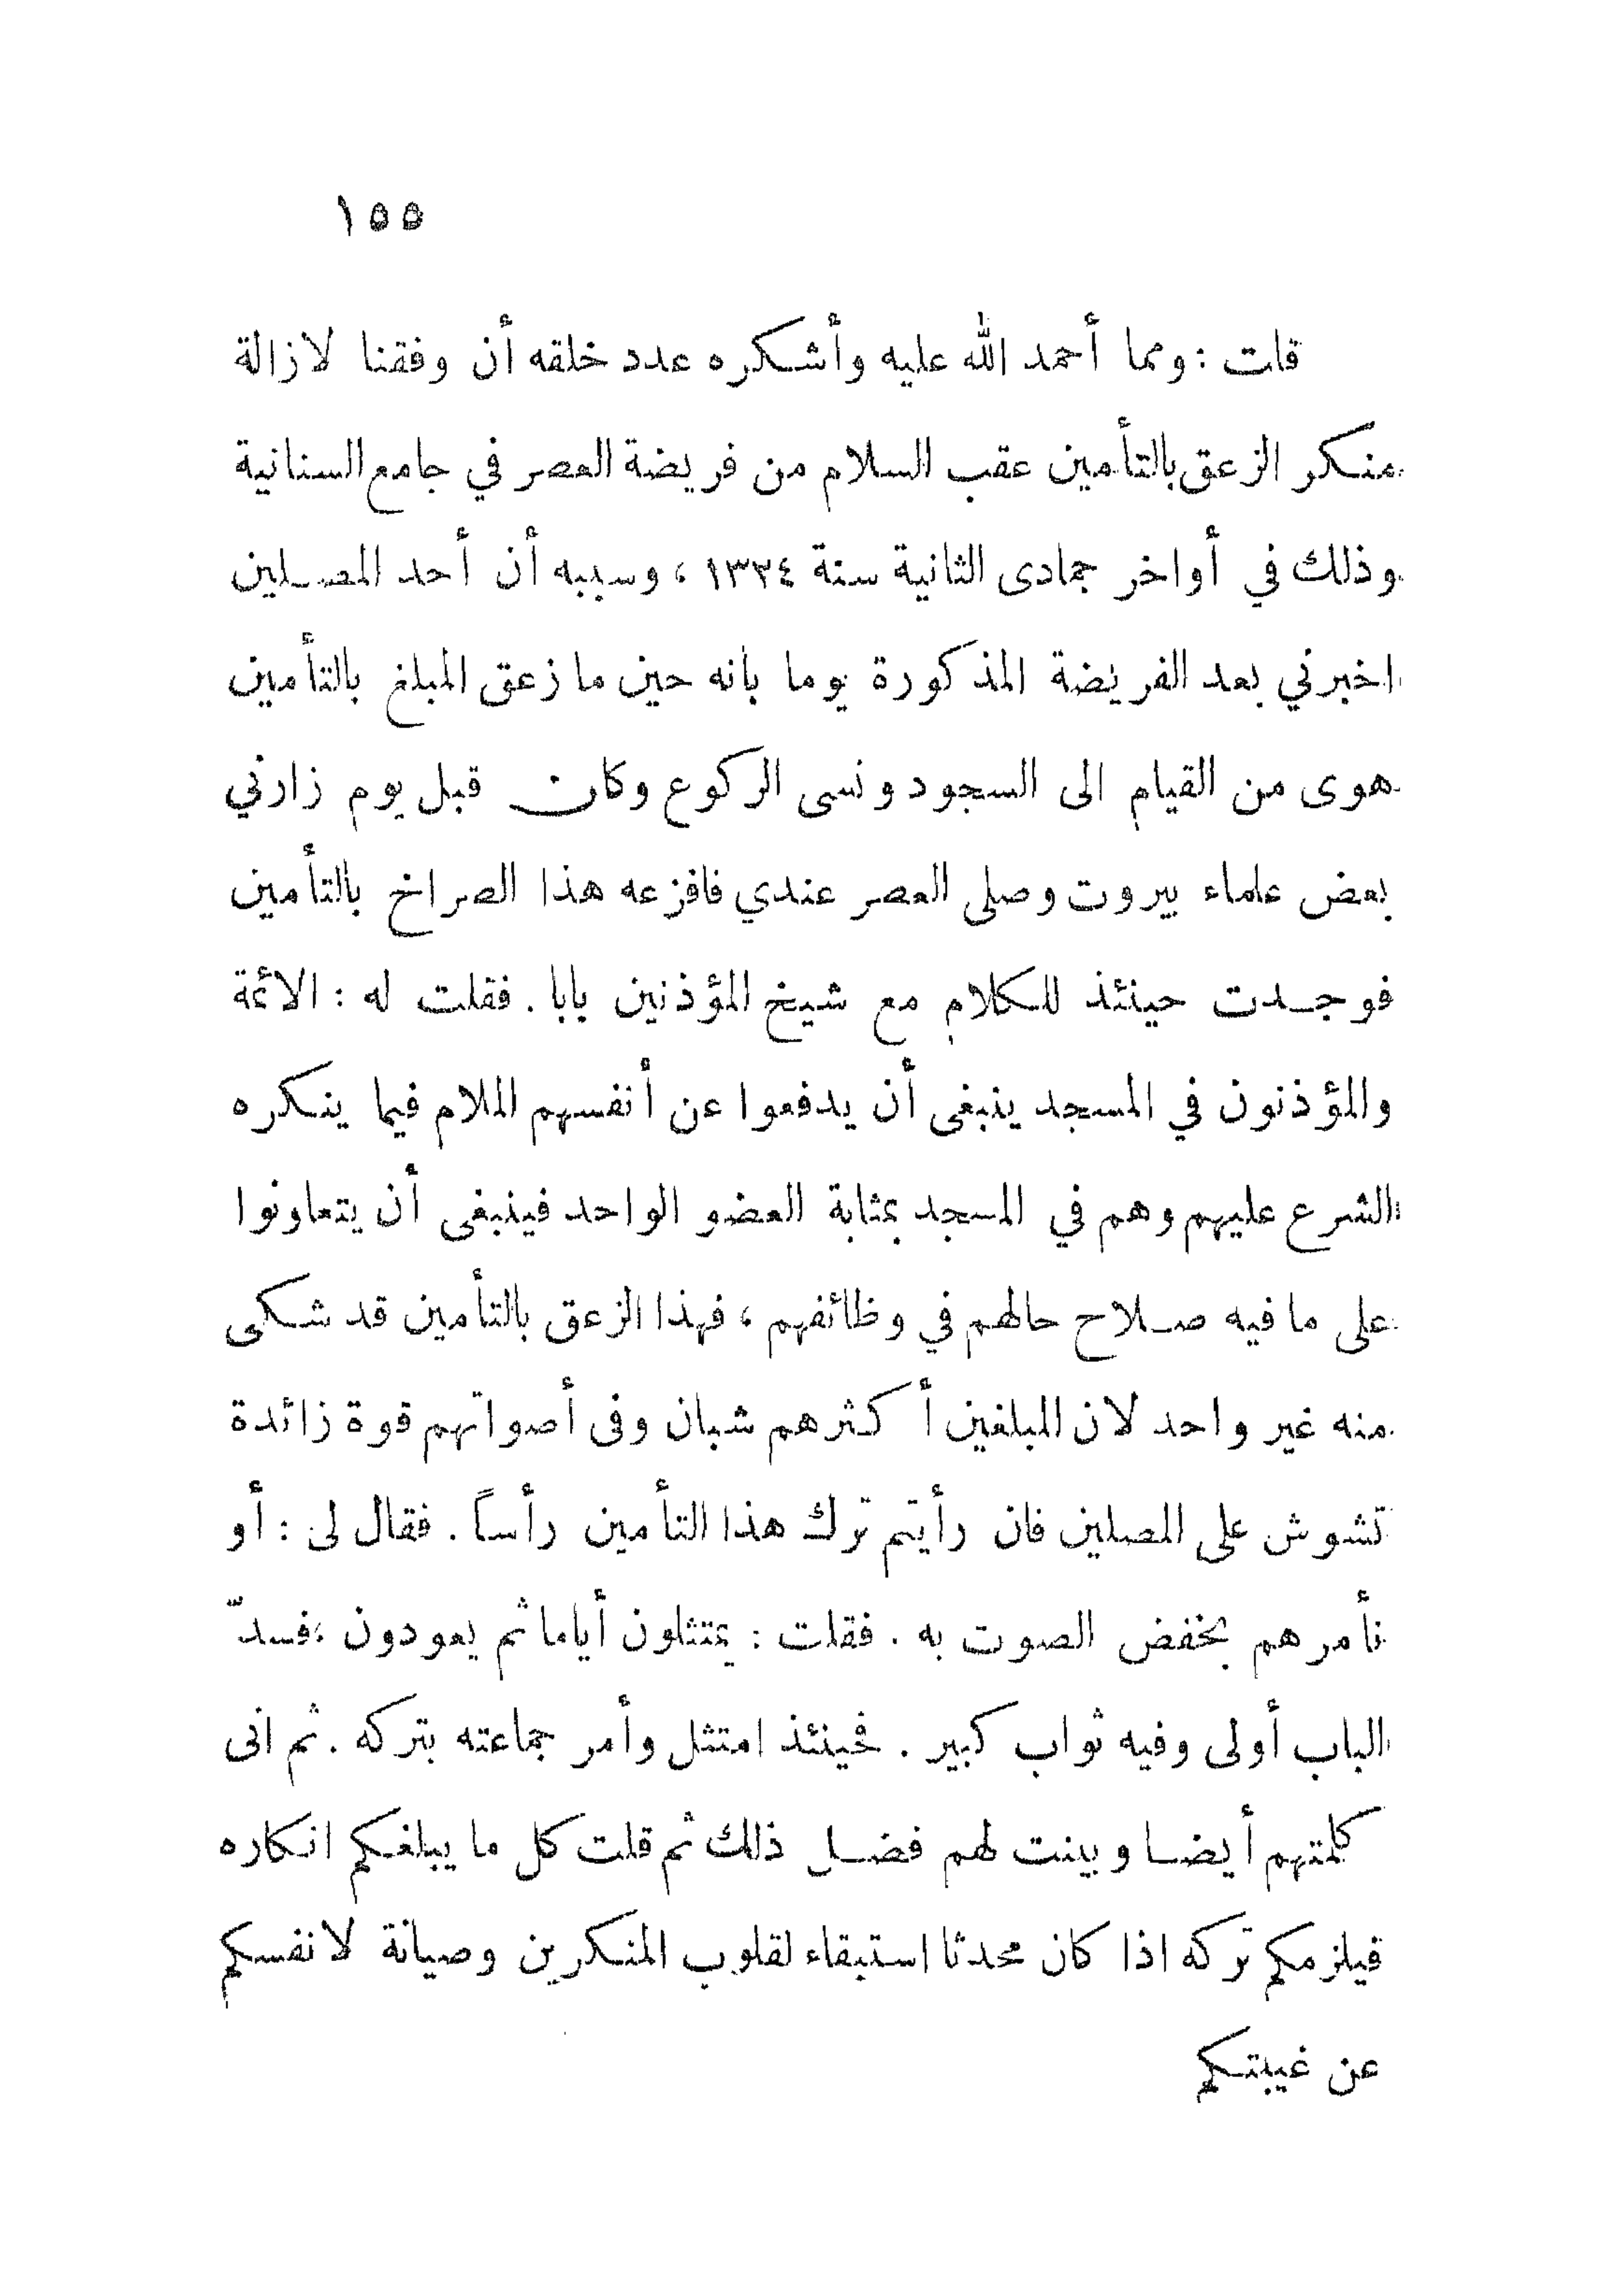 ١٥٥
قلت : ومما أحمد الله عليه وأشكره عدد خلقه أن وفقنا لازالة
منكر الزعق بالتأمين عقب السلام من فريضة العصر في جامع السنانية
وذلك في أواخر جمادى الثانية سنة ١٣٣٤ ، وسببه أن أحد المصلين
اخبرني بعد الفريضة المذكورة يوما بانه حين ما زعق المبلغ بالتأمين
هوى من القيام الى السجود ونسى الركوع وكان قبل يوم زارني
بعض علماء بيروت وصلى العصر عندي فافزعه هذا الصراخ بالتأمين
فوجدت حينئذ للكلام مع شيخ المؤذنين بابا . فقلت له : الائمة
والمؤذنون في المسجد ينبغى أن يدفعوا عن أنفسهم الملام فيما ينكره
الشرع عليهم وهم في المسجد بمثابة العضو الواحد فينبغى أن يتعاونوا
على ما فيه صلاح حالهم في وظائفهم ، فهذا الزعق بالتأمين قد شكى
منه غير واحد لان المبلغين أكثرهم شبان وفى أصواتهم قوة زائدة
تشوش على المصلين فان رأيتم ترك هذا التأمين رأساً . فقال لى : أو
نأمرهم بخفض الصوت به . فقلت : يمتثلون أياما ثم يعودون ، فسدّ
الباب أولى وفيه ثواب كبير . فحينئذ امتثل وأمر جماعته بتركه . ثم انى
كلمتهم أيضا وبينت لهم فضل ذلك ثم قلت كل ما يبلغكم انكاره
فيلزمكم تركه اذا كان محدثا استبقاء لقلوب المنكرين وصيانة لانفسكم
عن غيبتكم